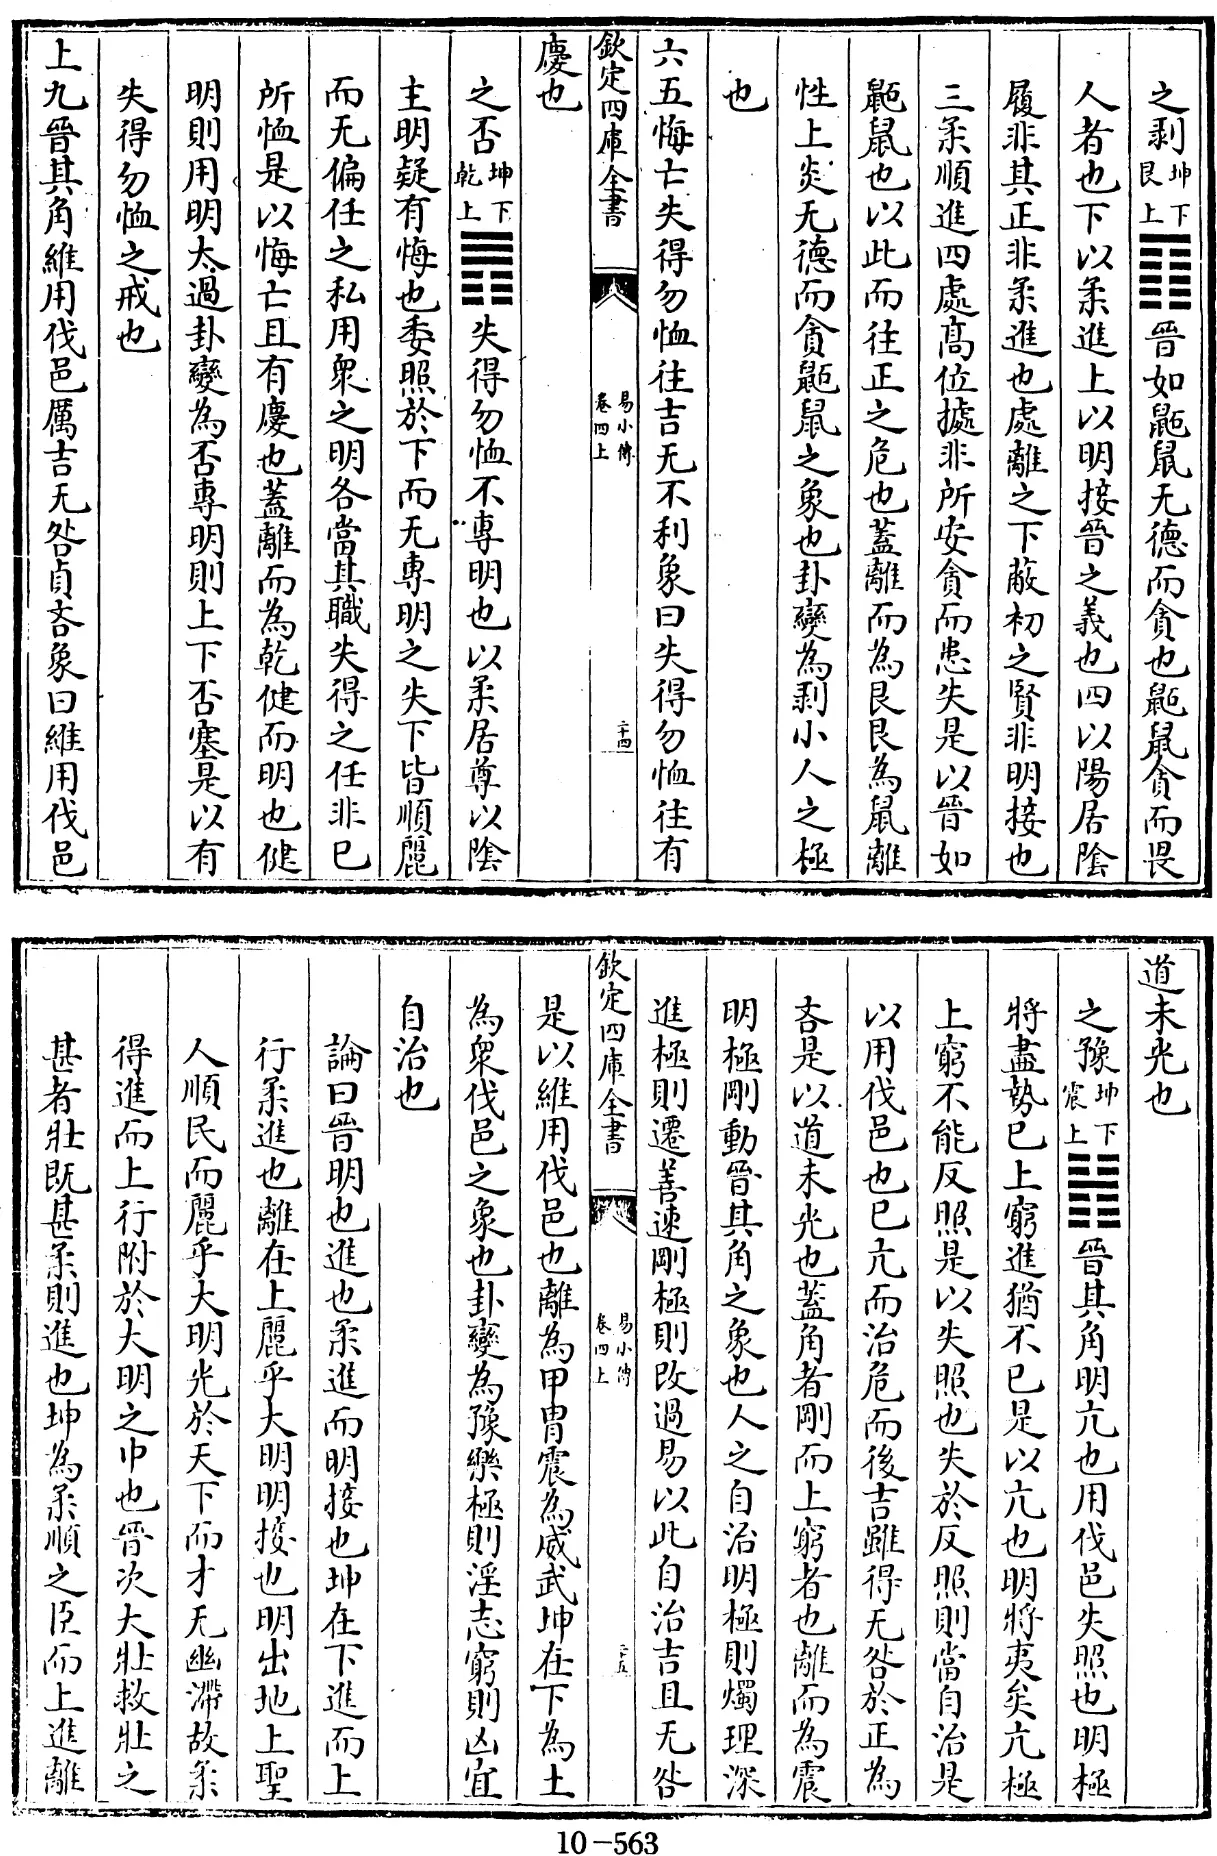 之剥坤下艮上晉如鼫鼠无德而貪也鼫鼠貪而畏
人者也下以柔進上以明接晉之義也四以陽居陰
履非其正非柔進也處離之下蔽初之賢非明接也
三柔順進四處髙位㨿非所安貪而患失是以晉如
鼫鼠也以此而往正之危也蓋離而為艮艮為鼠離
性上炎无德而貪鼫鼠之象也卦變為剥小人之極
也
六五悔亡失得勿恤往吉无不利象曰失得勿恤往有
欽定四庫全書
易小傳
卷四上
二十四
慶也
之否坤下乾上失得勿恤不專明也以柔居尊以陰
主明疑有悔也委照於下而无專明之失下皆順麗
而无偏任之私用衆之明各當其職失得之任非已
所恤是以悔亡且有慶也蓋離而為乾健而明也健
明則用明太過卦變為否專明則上下否塞是以有
失得勿恤之戒也
上九晉其角維用伐邑厲吉无咎貞吝象曰維用伐邑
道未光也
之豫坤下震上晉其角明亢也用伐邑失照也明極
將盡勢已上窮進猶不已是以亢也明將夷矣亢極
上窮不能反照是以失照也失於反照則當自治是
以用伐邑也已亢而治危而後吉雖得无咎於正為
吝是以道未光也蓋角者剛而上窮者也離而為震
明極剛動晉其角之象也人之自治明極則燭理深
進極則遷善速剛極則改過易以此自治吉且无咎
欽定四庫全書
易小傳
卷四上
二十五
是以維用伐邑也離為甲胄震為威武坤在下為土
為衆伐邑之象也卦變為豫樂極則淫志窮則凶宜
自治也
論曰晉明也進也柔進而明接也坤在下進而上
行柔進也離在上麗乎大明明接也明出地上聖
人順民而麗乎大明光於天下而才无幽滯故柔
得進而上行附於大明之中也晉次大壯救壯之
甚者壯既甚柔則進也坤為柔順之臣而上進離
10-563